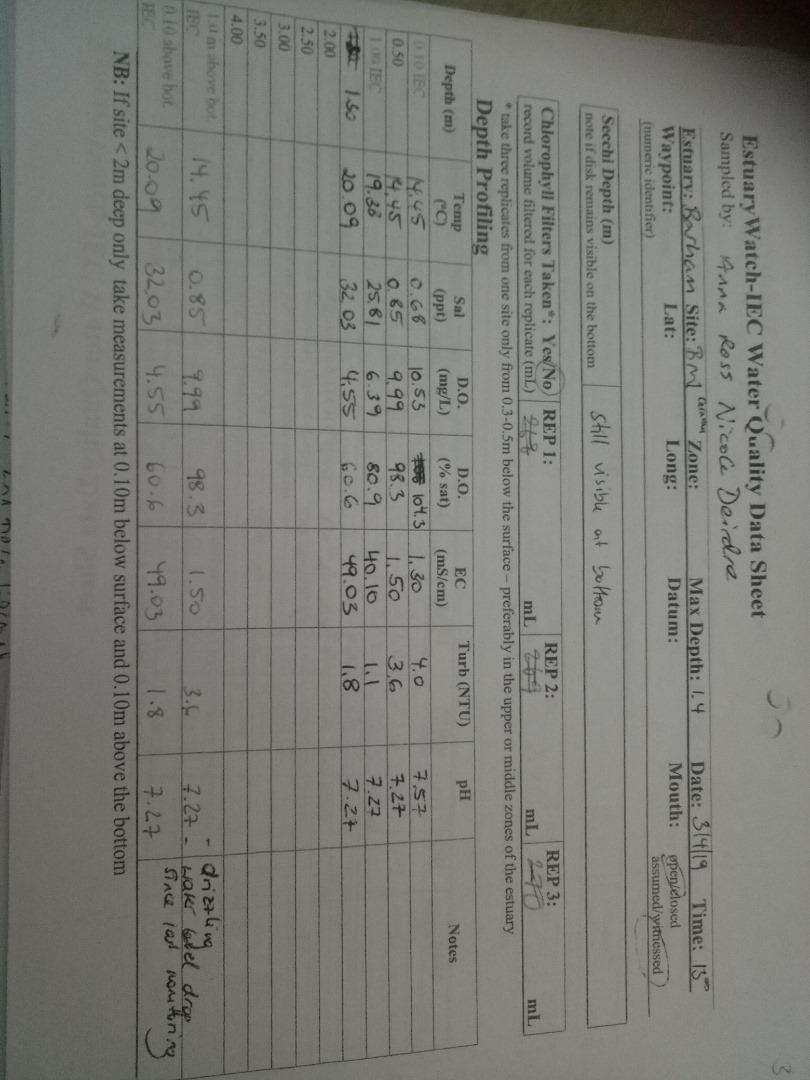 3
EstuaryWatch-IEC Water Quality Data Sheet
Sampled by: Anna Ross Nicole Deirdre
Estuary: Barham Site: BM Zone: Max Depth: 1.4 Date: 3/4/19 Time: 13:00
Waypoint: Lat: Long: Datum: Mouth: open/closed
(numeric identifier) assumed/witnessed
Secchi Depth (m) still visible at bottom
note if disk remains visible on the bottom
Chlorophyll Filters Taken*: Yes/No REP 1: REP 2: REP 3:
record volume filtered for each replicate (mL) mL mL mL
* take three replicates from one site only from 0.3-0.5m below the surface – preferably in the upper or middle zones of the estuary
Depth Profiling
Depth (m) Temp (°C) Sal (ppt) D.O. (mg/L) D.O. (% sat) EC (mS/cm) Turb (NTU) pH Notes
0.10 IEC 14.45 0.68 10.53 104.3 1.30 4.0 7.57
0.50 14.45 0.85 9.99 98.3 1.50 3.6 7.27
1.00 IEC 19.38 25.81 6.39 80.9 40.10 1.1 7.27
1.50 20.09 32.03 4.55 60.6 49.03 1.8 7.27
2.00
2.50
3.00
3.50
4.00
1.0 m above bot IEC 14.45 0.85 9.99 98.3 1.50 3.6 7.27 - drizzling
0.10 above bot IEC 20.09 32.03 4.55 60.6 49.03 1.8 7.27 - water level drop
since last monitoring
NB: If site < 2m deep only take measurements at 0.10m below surface and 0.10m above the bottom